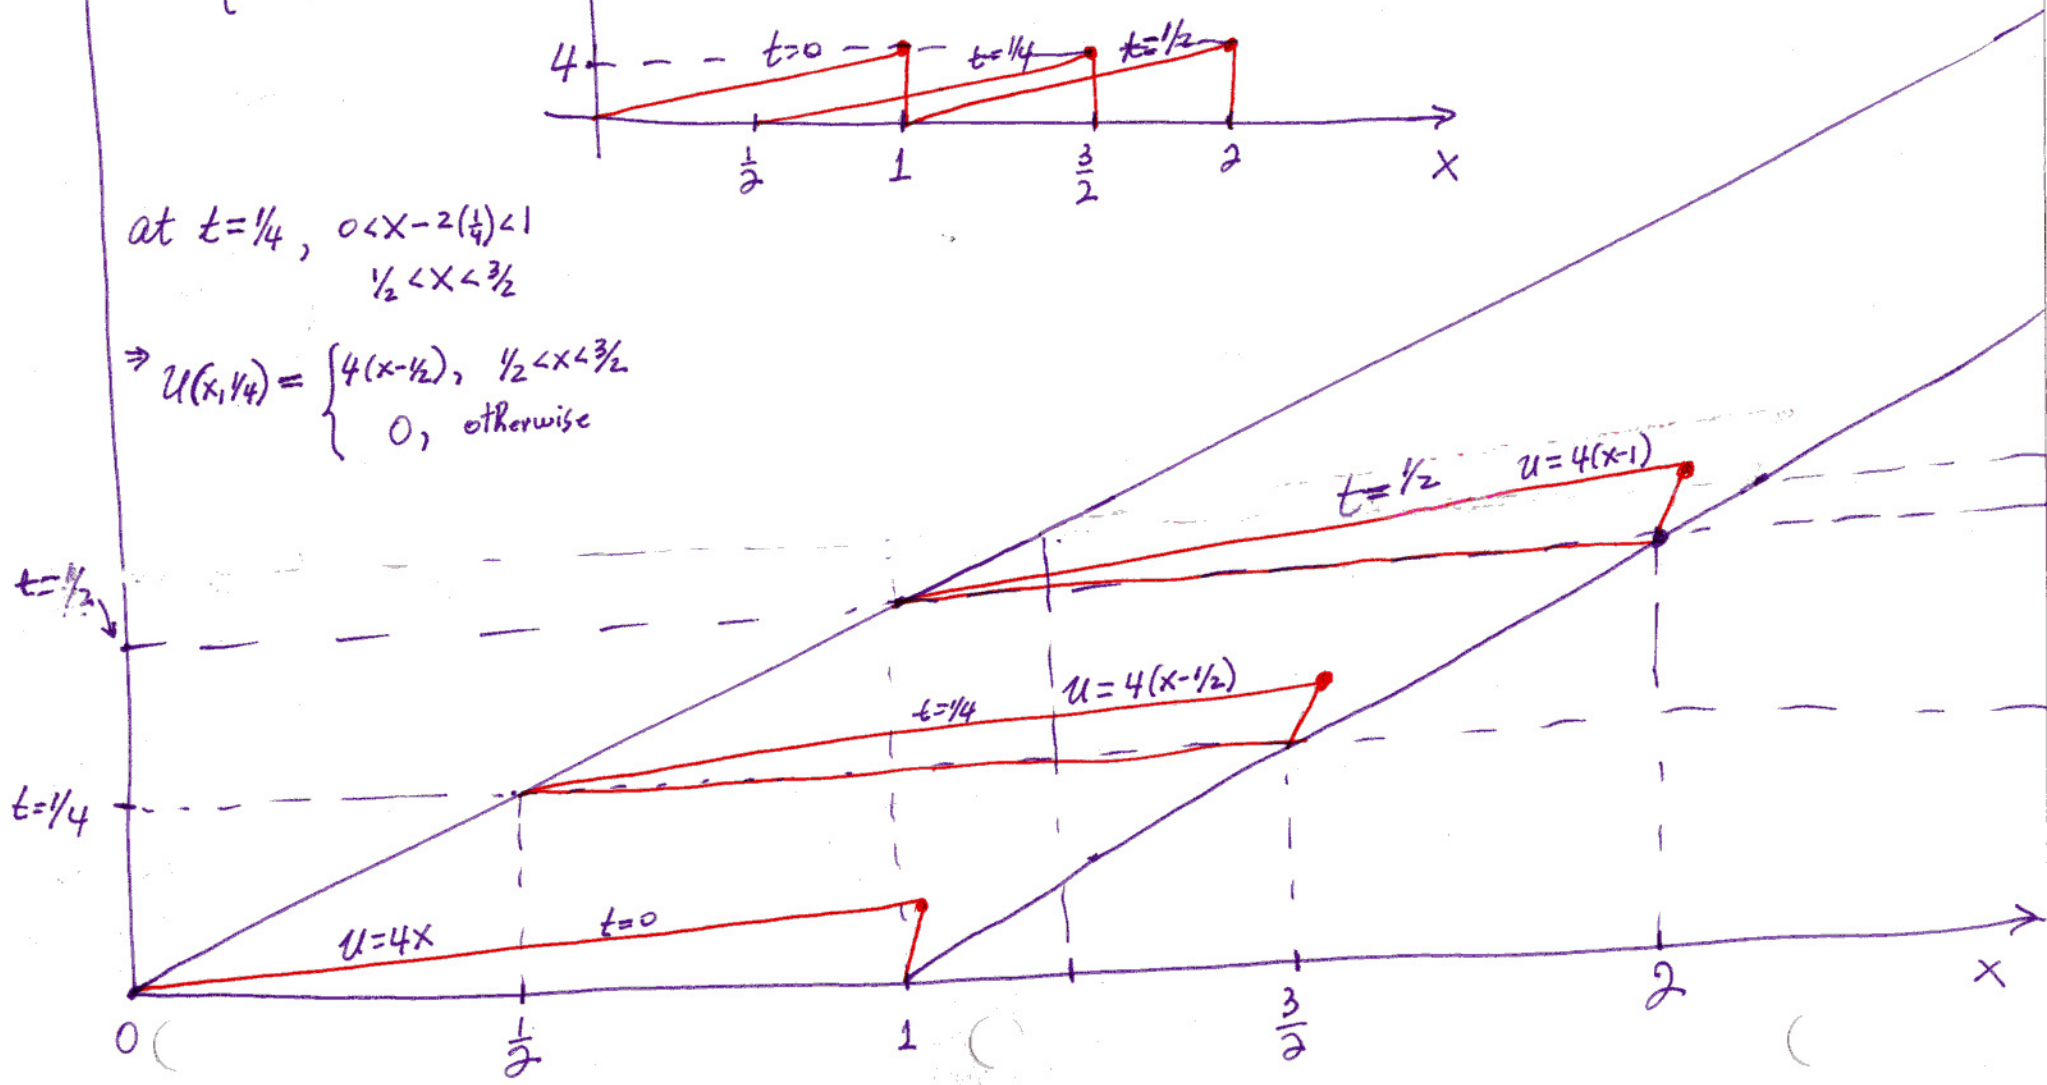 4 t=0 t=1/4 t=1/2
1/2 1 3/2 2 x
at t=1/4, 0<x-2(1/4)<1
1/2<x<3/2
⇒ u(x,1/4) = { 4(x-1/2), 1/2<x<3/2
0, otherwise
t=1/2 u=4(x-1)
t=1/2
t=1/4 u=4(x-1/2)
t=1/4
u=4x t=0
0 1/2 1 3/2 2 x